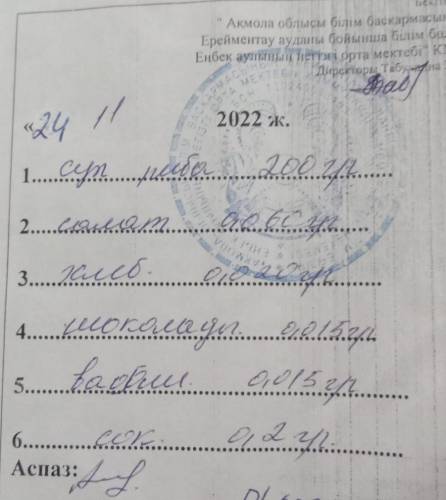 " Ақмола облысы білім басқармасын
Ерейментау ауданы бойынша білім бөл
Еңбек ауылының негізгі орта мектебі" К
Директоры
«24 11 2022 ж.
1.....суп рыба 200 гр.....
2.....салат 0,060 гр.....
3.....хлеб. 0,020 гр.....
4.....шоколады. 0,015 гр
5.....вафли. 0,015 гр.....
6.....сок. 0,2 гр.....
Аспаз: